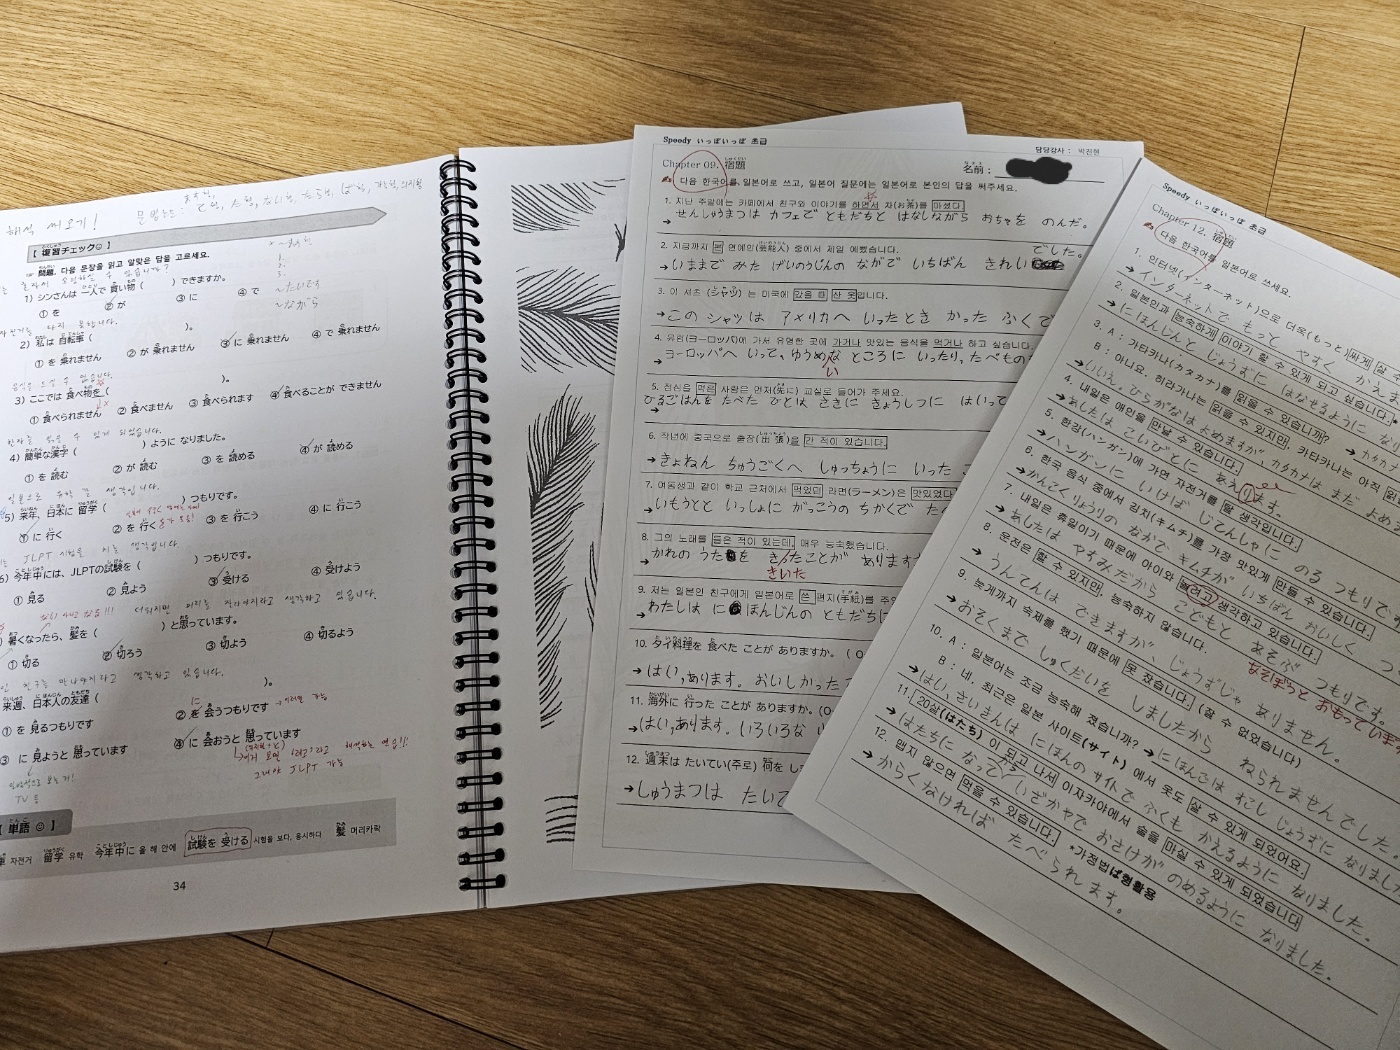 해석 써오기!
【 復習チェック☺ 】
問題. 다음 문장을 읽고 알맞은 답을 고르세요.
1) シンさんは 一人で 買い物 (          ) できますか。
① を ② が ③ に ④ で
~たいです
~ながら
2) 私は 自転車 (          )。
① を 乗れません ② が 乗れません ③ に 乗れません ④ で 乗れません
3) ここでは 食べ物を (          )。
① 食べられません ② 食べません ③ 食べられます ④ 食べることが できません
4) 簡単な 漢字 (          ) ように なりました。
① を 読む ② が 読む ③ を 読める ④ が 読める
5) 来年、日本に 留学 (          ) つもりです。
① に 行く ② を 行く ③ を 行こう ④ に 行こう
JLPT 시험을 치는 생각입니다.
6) 今年中には、JLPTの試験を (          ) つもりです。
① 見る ② 見よう ③ 受ける ④ 受けよう
더워지면 머리를 잘라야지라고 생각하고 있습니다.
暑くなったら、髪を (          ) と思っています。
① 切る ② 切ろう ③ 切よう ④ 切るよう
친구를 만나야지라고 생각하고 있습니다.
来週、日本人の友達 (          )。
① を 見るつもりです ② を 会うつもりです
に
③ に 見ようと 思っています ④ に 会おうと 思っています
그래야 JLPT 가능
TV 등
【 単語 ☺ 】
자전거 留学 유학 今年中に 올 해 안에 試験を 受ける 시험을 보다, 응시하다 髪 머리카락
34
Speedy いっぽいっぽ 초급
담당강사 : 박진현
Chapter 09. 宿題
名前 :
다음 한국어를 일본어로 쓰고, 일본어 질문에는 일본어로 본인의 답을 써주세요.
1. 지난 주말에는 카페에서 친구와 이야기를 하면서 차(お茶)를 마셨다.
→ せんしゅうまつは カフェで ともだちと はなしながら おちゃを のんだ。
2. 지금까지 본 연예인(芸能人) 중에서 제일 예뻤습니다.
でした。
→ いままで みた げいのうじんの なかで いちばん きれい
3. 이 셔츠 (シャツ) 는 미국에 갔을 때 산 옷입니다.
→ この シャツは アメリカへ いったとき かった ふくで
4. 유럽(ヨーロッパ)에 가서 유명한 곳에 가거나 맛있는 음식을 먹거나 하고 싶습니다.
→ ヨーロッパへ いって、ゆうめな ところに いったり、たべもの
い
5. 점심을 먹은 사람은 먼저(先に) 교실로 들어가 주세요.
→ ひるごはんを たべた ひとは さきに きょうしつに はいって
6. 작년에 중국으로 출장(出張)을 간 적이 있습니다.
→ きょねん ちゅうごくへ しゅっちょうに いった こ
7. 여동생과 같이 학교 근처에서 먹었던 라면(ラーメン)은 맛있었다
→ いもうとと いっしょに がっこうの ちかくで た
8. 그의 노래를 들은 적이 있는데, 매우 능숙했습니다.
→ かれの うたを きったことが あります
きいた
9. 저는 일본인 친구에게 일본어로 쓴 편지(手紙)를 주었
→ わたしは に ほんじんの ともだちに
10. タイ料理を 食べた ことが ありますか。 (○
→ はい, あります。おいしかった
11. 海外に 行った ことが ありますか。(○
→ はい, あります。いろいろな
12. 週末は たいてい(주로) 何を し
→ しゅうまつは たいて
Speedy いっぽいっぽ 초급
Chapter 12. 宿題
다음 한국어를 일본어로 쓰세요.
1. 인터넷(インターネット)으로 더욱(もっと) 싸게 살 수
→ インターネットで もっと やすく かえ
2. 일본인과 능숙하게 이야기 할 수 있게 되고 싶습니다.
→ にほんじんと じょうずに はなせるように
3. A : 가타카나(カタカナ)를 읽을 수 있습니까?
→ カタカナ
B : 아니요. 히라가나는 읽을 수 있지만, 카타카나는 아직
→ いいえ。ひらがなは よめますが カタカナは まだ よめ
4. 내일은 애인을 만날 수 있습니다.
→ あしたは こいびとに あえります。
5. 한강(ハンガン)에 가면 자전거를 탈 생각입니다.
→ ハンガンに いけば じてんしゃに のる つもりで
6. 한국 음식 중에서 김치(キムチ)를 가장 맛있게 만들 수 있습니다.
→ かんこくりょうりの なかで キムチが いちばん おいしく つ
7. 내일은 휴일이기 때문에 아이와 놀려고 생각하고 있습니다.
→ あしたは やすみだから こどもと あそぶ つもりです。
あそぼうと おもっています
8. 운전은 할 수 있지만, 능숙하지 않습니다.
→ うんてんは できますが、じょうずじゃ ありません。
9. 늦게까지 숙제를 했기 때문에 못 잤습니다. (잘 수 없었습니다)
→ おそくまで しゅくだいを しましたから ねられませんでした。
10. A : 일본어는 조금 능숙해 졌습니까? → にほんごは すこし じょうずに なりました
B : 네, 최근은 일본 사이트(サイト) 에서 옷도 살 수 있게 되었어요.
→ はい, さいきんは にほんの サイトで ふくも かえるように なりました。
11. 20살(はたち) 이 되고 나서 이자카야에서 술을 마실 수 있게 되었습니다
→ はたちに なって いざかやで おさけが のめるように なりました。
から
12. 맵지 않으면 먹을 수 있습니다. *가정법ば형활용
→ からくなければ たべられます。